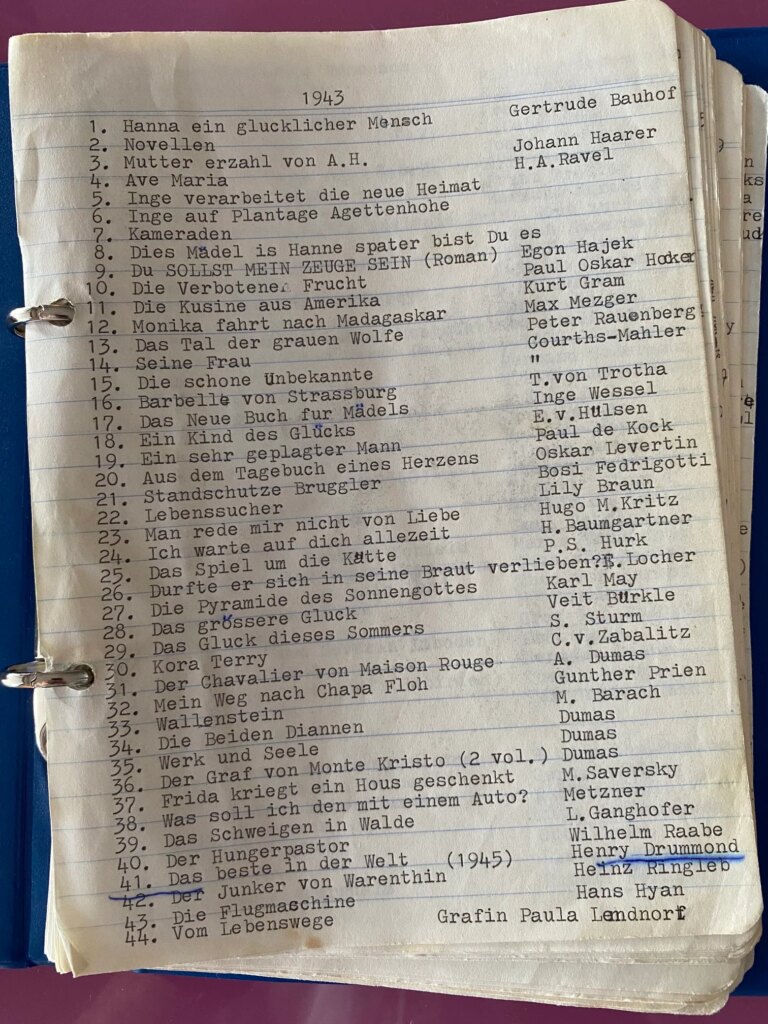 1943
1. Hanna ein glucklicher Mensch Gertrude Bauhof
2. Novellen
3. Mutter erzahl von A.H. Johann Haarer
4. Ave Maria H.A.Ravel
5. Inge verarbeitet die neue Heimat
6. Inge auf Plantage Agettenhohe
7. Kameraden
8. Dies Mädel is Hanne spater bist Du es
9. Du SOLLST MEIN ZEUGE SEIN (Roman) Egon Hajek
10. Die Verbotene Frucht Paul Oskar Hocker
11. Die Kusine aus Amerika Kurt Gram
12. Monika fahrt nach Madagaskar Max Mezger
13. Das Tal der grauen Wolfe Peter Rauenberg
14. Seine Frau Courths-Mahler
15. Die schone Unbekannte "
16. Barbelle von Strassburg T.von Trotha
17. Das Neue Buch fur Mädels Inge Wessel
18. Ein Kind des Glücks E.v.Hülsen
19. Ein sehr geplagter Mann Paul de Kock
20. Aus dem Tagebuch eines Herzens Oskar Levertin
21. Standschutze Bruggler Bosi Fedrigotti
22. Lebenssucher Lily Braun
23. Man rede mir nicht von Liebe Hugo M.Kritz
24. Ich warte auf dich allezeit H.Baumgartner
25. Das Spiel um die Kätte P.S. Hurk
26. Durfte er sich in seine Braut verlieben?E.Locher
27. Die Pyramide des Sonnengottes Karl May
28. Das grössere Gluck Veit Bürkle
29. Das Gluck dieses Sommers S. Sturm
30. Kora Terry C.v.Zabalitz
31. Der Chavalier von Maison Rouge A. Dumas
32. Mein Weg nach Chapa Floh Gunther Prien
33. Wallenstein M. Barach
34. Die Beiden Diannen Dumas
35. Werk und Seele Dumas
36. Der Graf von Monte Kristo (2 vol.) Dumas
37. Frida kriegt ein Hous geschenkt M.Saversky
38. Was soll ich den mit einem Auto? Metzner
39. Das Schweigen in Walde L.Ganghofer
40. Der Hungerpastor Wilhelm Raabe
41. Das beste in der Welt (1945) Henry Drummond
42. Der Junker von Warenthin Heinz Ringleb
43. Die Flugmaschine Hans Hyan
44. Vom Lebenswege Grafin Paula Lendnorf